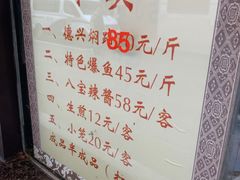 一、德兴焖蹄85元/斤
二、特色爆鱼45元/斤
三、八宝辣酱58元/客
四、生煎12元/客
五、小笼20元/客
成品半成品（